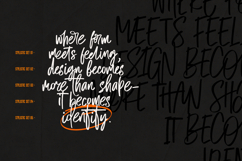 where form
meets feeling,
design becomes
more than shape—
it becomes
identity
WHERE F
MEETS FEELI
SIGN BECOME
RE THAN SHA
IT BECO
IDEN